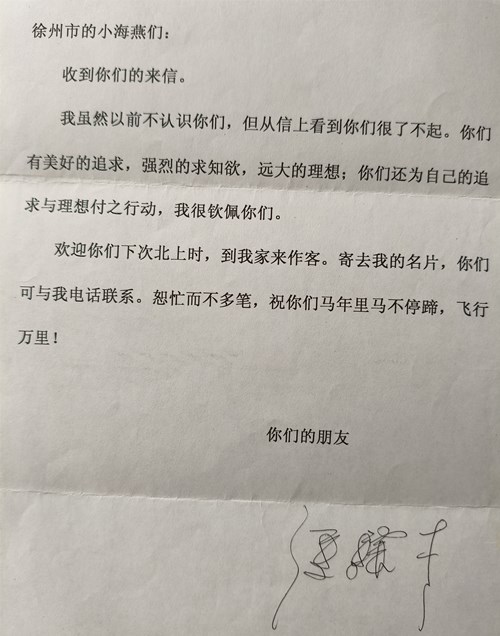 徐州市的小海燕们：
收到你们的来信。
我虽然以前不认识你们，但从信上看到你们很了不起。你们
有美好的追求，强烈的求知欲，远大的理想；你们还为自己的追
求与理想付之行动，我很钦佩你们。
欢迎你们下次北上时，到我家来作客。寄去我的名片，你们
可与我电话联系。恕忙而不多笔，祝你们马年里马不停蹄，飞行
万里！
你们的朋友